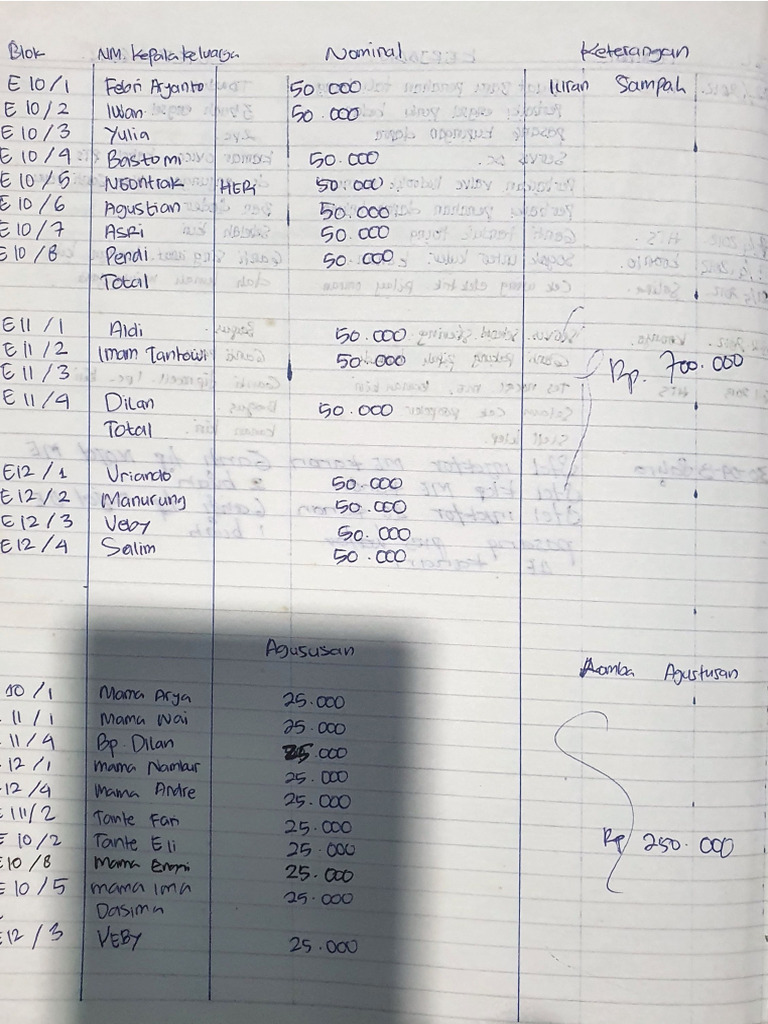 Blok NM. Kepala keluarga Nominal Keterangan
E 10/1 Febri Aryanto 50.000 Iuran Sampah
E 10/2 Iwan 50.000
E 10/3 Yulia
E 10/4 Bastomi 50.000
E 10/5 Ngontrak HERI 50.000
E 10/6 Agustian 50.000
E 10/7 ASRi 50.000
E 10/8 Pendi 50.000
Total
E11/1 Aldi 50.000
E11/2 Imam Tantowi 50.000 Rp. 700.000
E11/3
E11/4 Dilan 50.000
Total
E12/1 Uriando 50.000
E12/2 Manurung 50.000
E12/3 Veby 50.000
E12/4 Salim 50.000
Agususan Lomba Agustusan
10/1 Mama Arya 25.000
11/1 Mama Wai 25.000
11/4 Bp. Dilan 25.000
12/1 Mama 25.000
12/4 Mama Andre 25.000
E 11/2 Tante Fari 25.000
E 10/2 Tante Eli 25.000 Rp 250.000
E10/8 Mama 25.000
E 10/5 mama Ima 25.000
Dasima
E12/3 VEBY 25.000